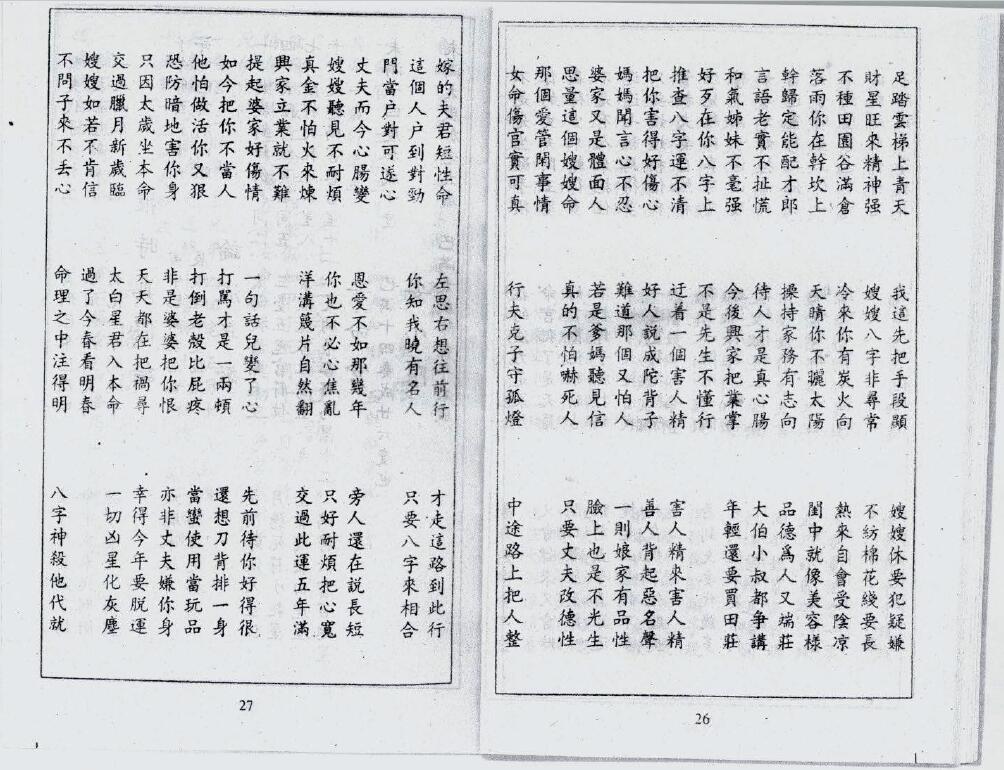 足踏雲梯上青天 我這先把手段顯 嫂嫂休要犯疑嫌
財星旺來精神强 嫂嫂八字非尋常 不紡棉花綫要長
不種田園谷滿倉 冷來你有炭火向 熱來自會受陰凉
落雨你在幹坎上 天晴你不曬太陽 閨中就像美容樣
幹歸定能配才郎 操持家務有志向 品德爲人又端莊
言語老實不扯慌 待人才是真心腸 大伯小叔都争講
和氣姊妹不毫强 今後興家把業掌 年輕還要買田莊
好歹在你八字上 不是先生不懂行
推查八字運不清 迂着一個害人精 害人精來害人精
把你害得好傷心 好人說成陀背子 善人背起惡名聲
媽媽聞言心不忍 難道那個又怕人 一則娘家有品性
婆家又是體面人 若是爹媽聽見信 臉上也是不光生
思量這個嫂嫂命 真的不怕嚇死人 只要丈夫改德性
那個愛管閑事情
女命傷官實可真 行夫克子守孤燈 中途路上把人整
26
嫁的夫君短性命 左思右想往前行 才走這路到此行
這個人户到對勁 你知我曉有名人 只要八字來相合
門當户對可遂心
丈夫而今心腸變 恩愛不如那幾年 旁人還在説長短
嫂嫂聽見不耐煩 你也不必心焦亂 只好耐煩把心寬
真金不怕火來煉 洋溝篾片自然翻 交過此運五年滿
興家立業就不難
提起婆家好傷情 一句話兒變了心 先前待你好得很
如今把你不當人 打罵才是一兩頓 還想刀背排一身
他怕做活你又狠 打倒老殻比屁疼 當蠻使用當玩品
恐防暗地害你身 非是婆婆把你恨 亦非丈夫嫌你身
只因太歲坐本命 天天都在把禍尋 幸得今年要脱運
交過臘月新歲臨 太白星君入本命 一切凶星化灰塵
嫂嫂如若不肯信 過了今春看明春
不問子來不丢心 命理之中注得明 八字神殺他代就
27